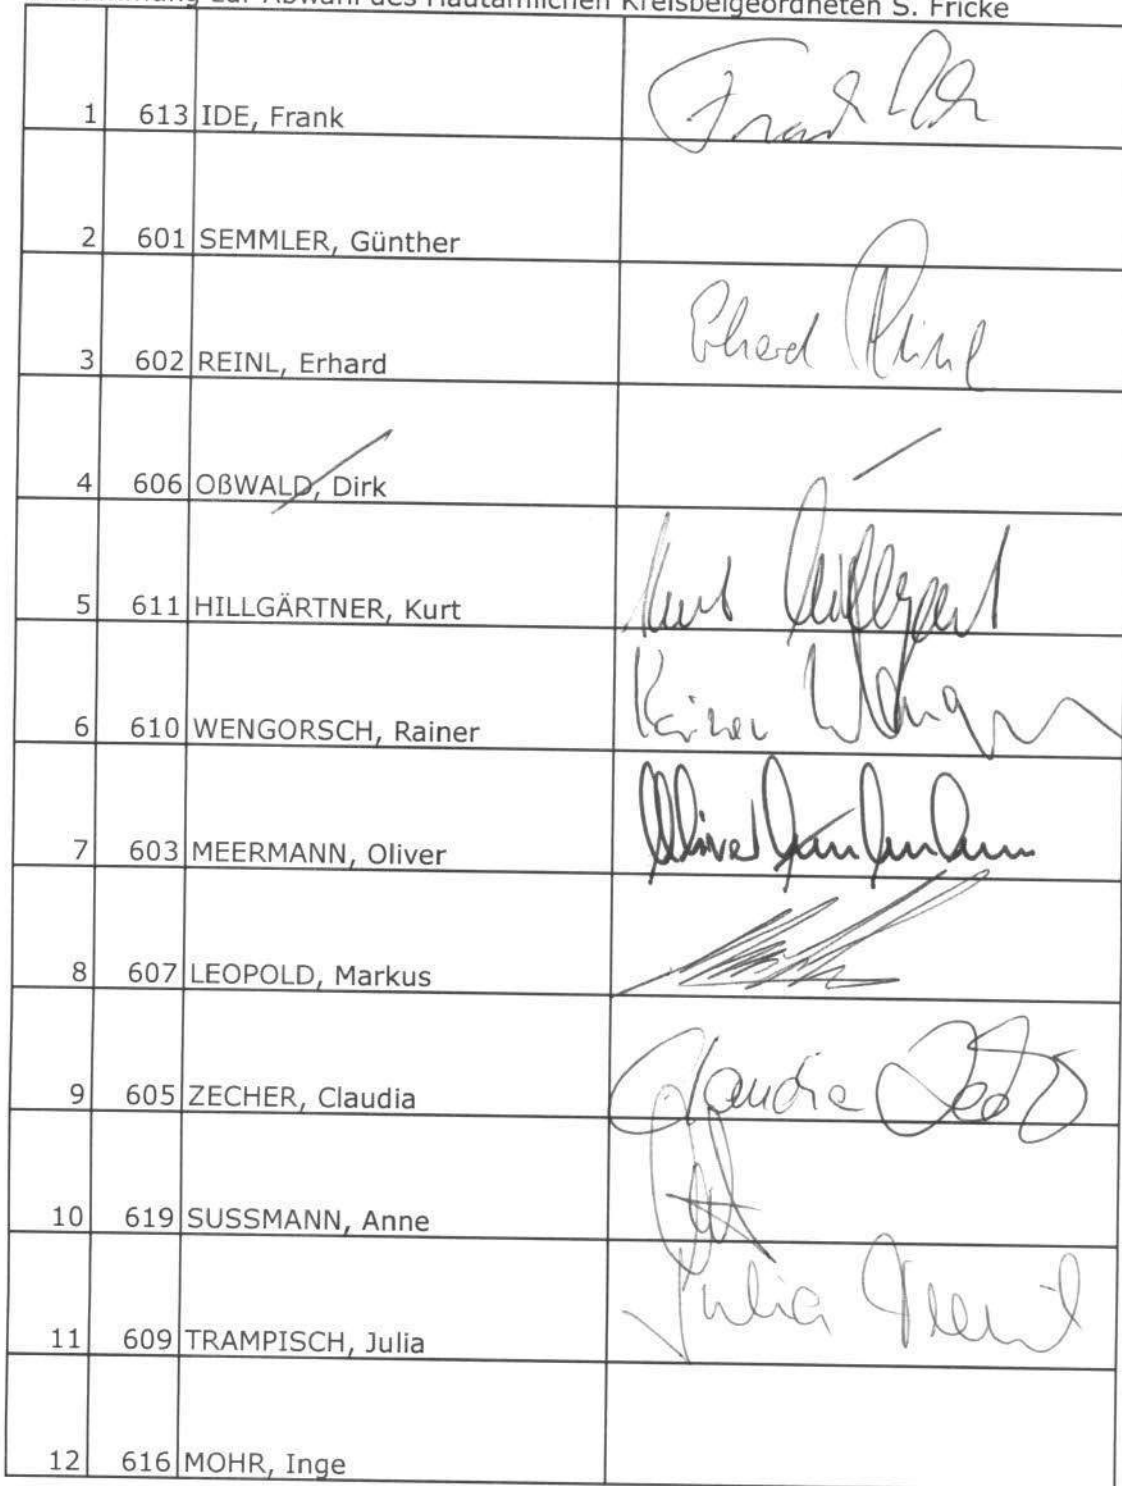 zur Abwahl des Hautamlichen Kreisbeigeordneten S. Fricke
1 613 IDE, Frank Frank Ide
2 601 SEMMLER, Günther
3 602 REINL, Erhard Erhard Reinl
4 606 OßWALD, Dirk
5 611 HILLGÄRTNER, Kurt Kurt
6 610 WENGORSCH, Rainer Rainer
7 603 MEERMANN, Oliver Oliver
8 607 LEOPOLD, Markus
9 605 ZECHER, Claudia Claudia
10 619 SUSSMANN, Anne
11 609 TRAMPISCH, Julia Julia
12 616 MOHR, Inge